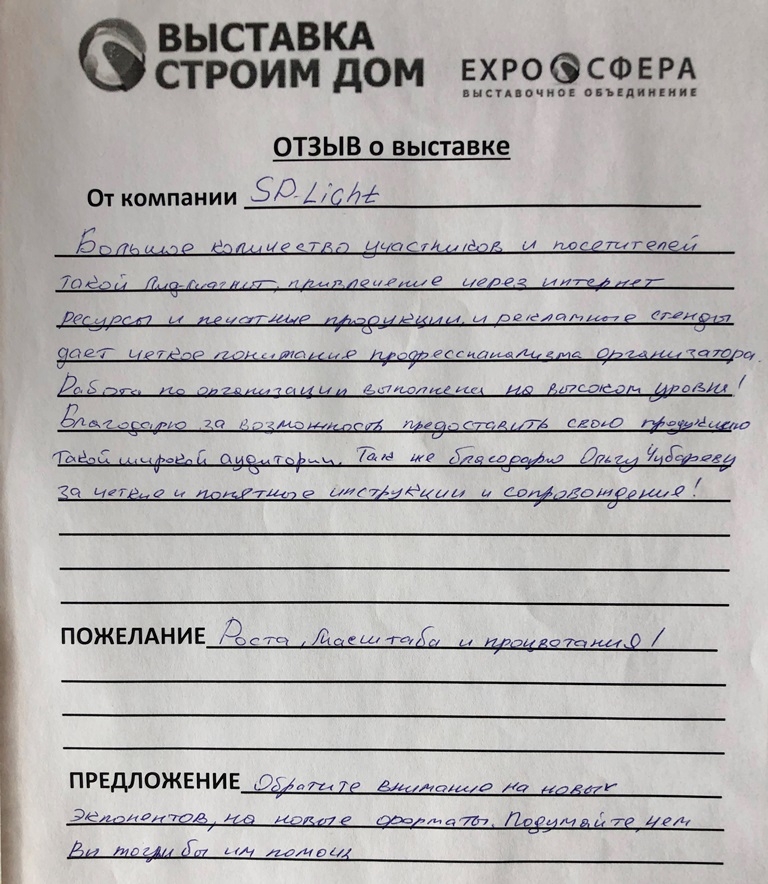 ВЫСТАВКА
СТРОИМ ДОМ
EXPO СФЕРА
ВЫСТАВОЧНОЕ ОБЪЕДИНЕНИЕ
ОТЗЫВ о выставке
От компании SD-Light
Большое количество участников и посетителей
такой лид-магнит, привлечение через интернет
ресурсы и печатные продукции, и рекламные стенды
дает четкое понимания профессианализма организатора.
Работа по организации выполнена на высоком уровне!
Благодарю за возможность предоставить свою продукцию
такой широкой аудитории. Так же благодарю Ольгу Чубареву
за четкие и понятные инструкции и сопровождения!
ПОЖЕЛАНИЕ Роста, Масштаба и процветания!
ПРЕДЛОЖЕНИЕ Обратите внимание на новых
экпонентов, на новые форматы. Подумайте, чем
Вы могли бы им помочь